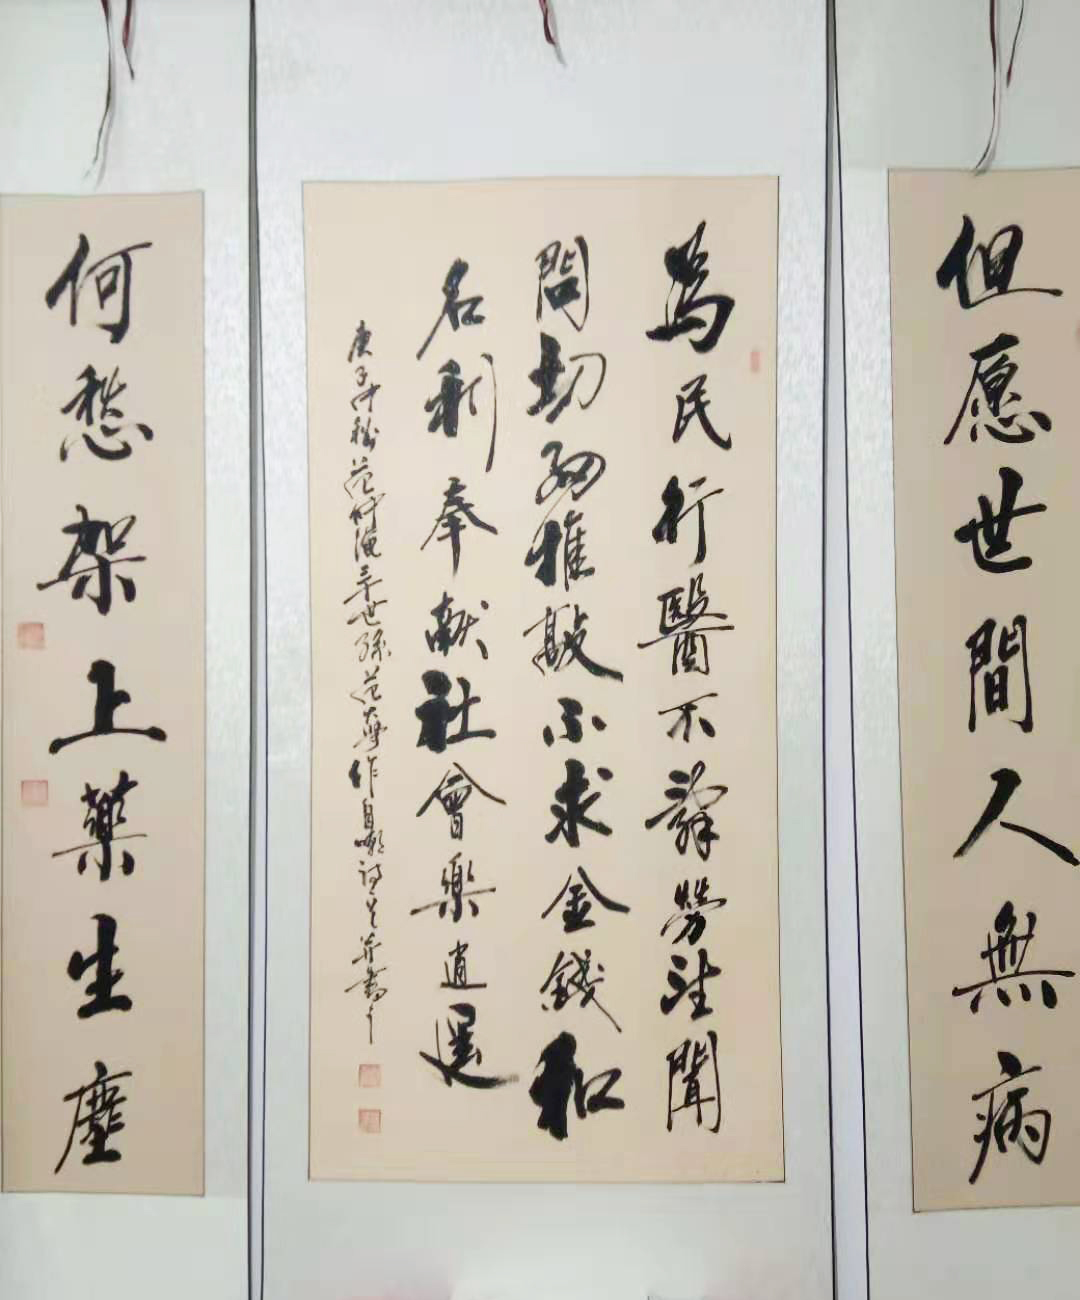 但愿世間人無病
為民行醫不辭勞望聞
問切细推敲不求金錢和
名利奉献社會樂逍遥
庚子仲秋范仲淹三十世孫范大學作自嘲詩一首并書
何愁架上藥生塵